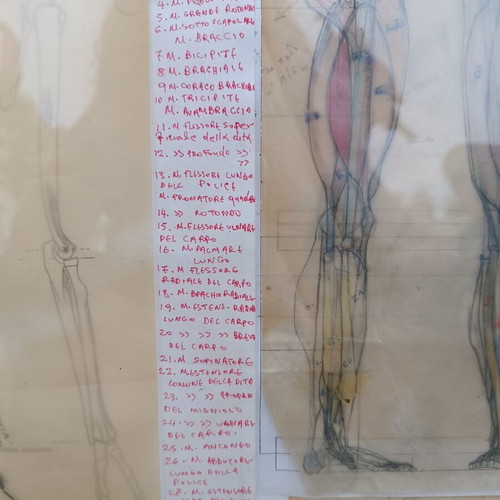 5. M. GRANDE ROTONDO
6. M. SOTTOSCAPOLARE
M. BRACCIO
7 M. BICIPITE
8 M. BRACHIALE
9 M. CORACO BRACHIALE
10 M. TRICIPITE
M. AVAMBRACCIO
11. M FLESSORE SUPER
delle dita
12. >> PROFONDO >>
>>
13. M FLESSORE LUNGO
DELL POLICE
M. PRONATORE QUADRA
14. >> ROTONDO
15. M. FLESSORE ULNARE
DEL CARPO
16. M. PALMARE
LUNGO
17. M FLESSORE
RADIALE DEL CARPO
18. M. BRACHIORADIALE
19. M. ESTENS. RADIA
LUNGO DEL CARPO
20 >> >> >> BREVE
DEL CARPO
21. M SUPINATORE
22. M. ESTENSORE
COMUNE DELLA DITA
23. >> >>
DEL MIGNIOLO
24. >> >> ULNARE
DEL CARPO.
25. M. ANCONEO
26. M. ABDUTTORE
LUNGO DELLA
POLICE
M. ESTENSORE